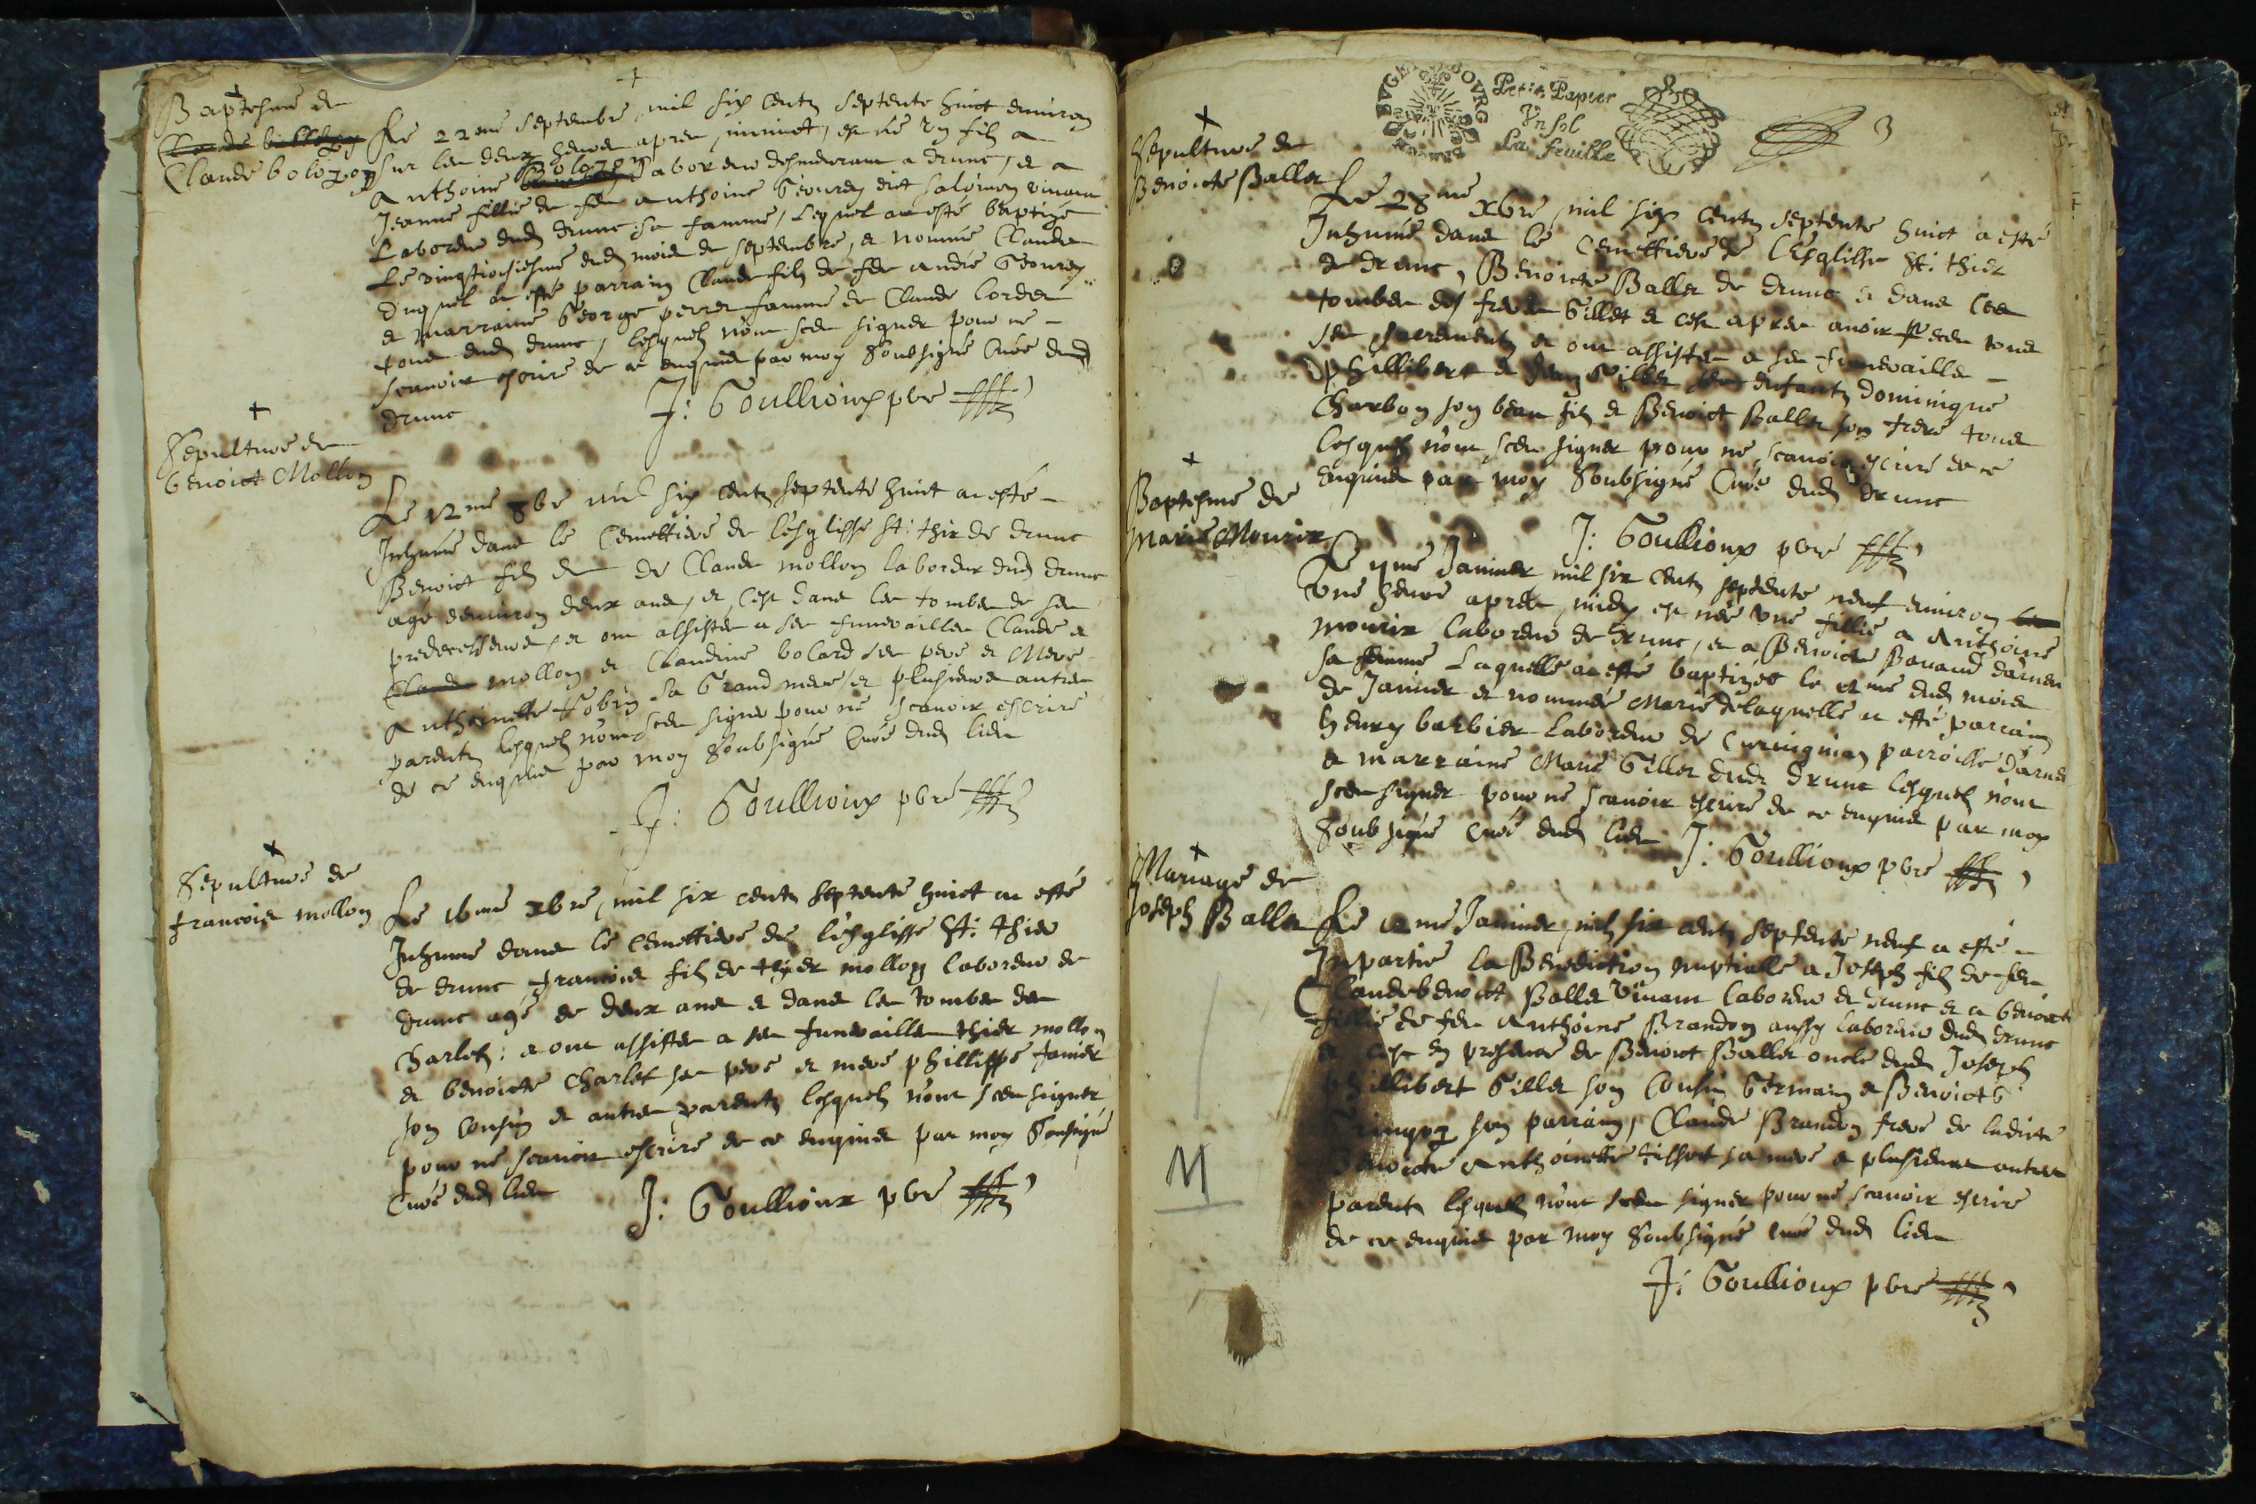 Baptesme de
Claude bolozon
Le 22me septembre mil six centz septente huict environ
sur les deux heures apres minuot, est né un filz a
Anthoine Bolozon laboreur demeurant a drunc, et a
Jeanne fillie de feu anthoine Geouray dict salomon vivant
Laboreur dud drunc sa famme, Lequel at esté baptizé
Le vingttroisiesme dud mois de septembre, et nommé Claude
duquel at esté parrain Claude filz de feu andré Geouray
et marraine George perret famme de Claude Cordet
tous dud drunc, lesquelz n'ont sceu signer pour ne
scavoir escrire de ce enquis par moy Soubsigné Curé dud
drunc
J: Goullioux pbre
Sepulture de
benoict Mollon
Le 12me 8bre mil six centz septente huict at esté
Inhumé dans le Cemettiere de l'esglisse st: thir de drunc
Benoict filz de Claude mollon laboreur dud drunc
agé denviron deux ans, et c'est dans les tombes de ses
predecesseurs, et ont assistés a ses funerailles Claude
mollon et Claudine bolard ses pere et Mere
Anthoinette Gobin sa Grand mere et plusieurs autres
parentz lesquelz n'ont sceu signer pour ne scavoir escrire
de ce enquis par moy Soubsigné Curé dud lieu
J: Goullioux pbre
Sepulture de
francois mollon
Le 16me xbre mil six centz septente huict at esté
Inhumé dans le Cemettiere de l'esglisse St: thir
de drunc francois filz de thier mollon laboreur de
drunc agé de deux ans et dans les tombes des
Charletz: et ont assistés a ses funerailles thier mollon
et benoicte Charlet ses pere et mere phillippe Janier
son Cousin et autres parentz lesquelz n'ont sceu signer
pour ne scavoir escrire de ce enquis par moy Soubsigné
Curé dud lieu
J: Goullioux pbre
BOURG
BUGEY
Petit Papier
Vn sol
La feuille
3
Sepulture de
Benoicte Ballet
Le 28me xbre mil six centz septente huict a esté
Inhumé dans le Cemettiere de l'esglisse st: thier
de drunc, Benoicte Ballet de drunc et dans les
tombes des freres Gillet et c'est apres avoir receu tous
ses sacrementz et ont assistés a ses funerailles
phillibert et Jean Gillet ses enfantz dominique
Charbon son beau filz et Benoict Ballet son frere tous
lesquelz n'ont sceu signer pour ne scavoir escrire de ce
enquis par moy Soubsigné Curé dud drunc
J: Goullioux pbre
Baptesme de
Marie Mourix
Janvier mil six centz septente neuf environ
une heure apres midy est née une fillie a Anthoine
mourix laboreur de drunc, et a Benoicte
sa femme Laquelle at esté baptizée le dud mois
de Janvier et nommée Marie de laquelle at esté parrain
henry barbier Laboreur de Curvignian parroisse
et marraine Marie Gillet dud drunc lesquelz n'ont
sceu signer pour ne scavoir escrire de ce enquis par moy
Soubsigné Curé dud lieu J: Goullioux pbre
Mariage de
Joseph Ballet
Le Janvier mil six centz septente neuf a esté
Impartie la Benediction nuptialle a Joseph filz de feu
Claude benoict Ballet vivant laboreur de drunc et a benoicte
fillie de feu Anthoine Brandon aussy laboreur dud drunc
et c'est en presence de Benoict Ballet oncle dud Joseph
phillibert Gillet son Cousin Germain et Benoict
son parrain, Claude Brandon frere de ladicte
Benoicte Anthoinette tissot sa mere et plusieurs autres
parentz lesquelz n'ont sceu signer pour ne scavoir escrire
de ce enquis par moy Soubsigné Curé dud lieu
J: Goullioux pbre
M